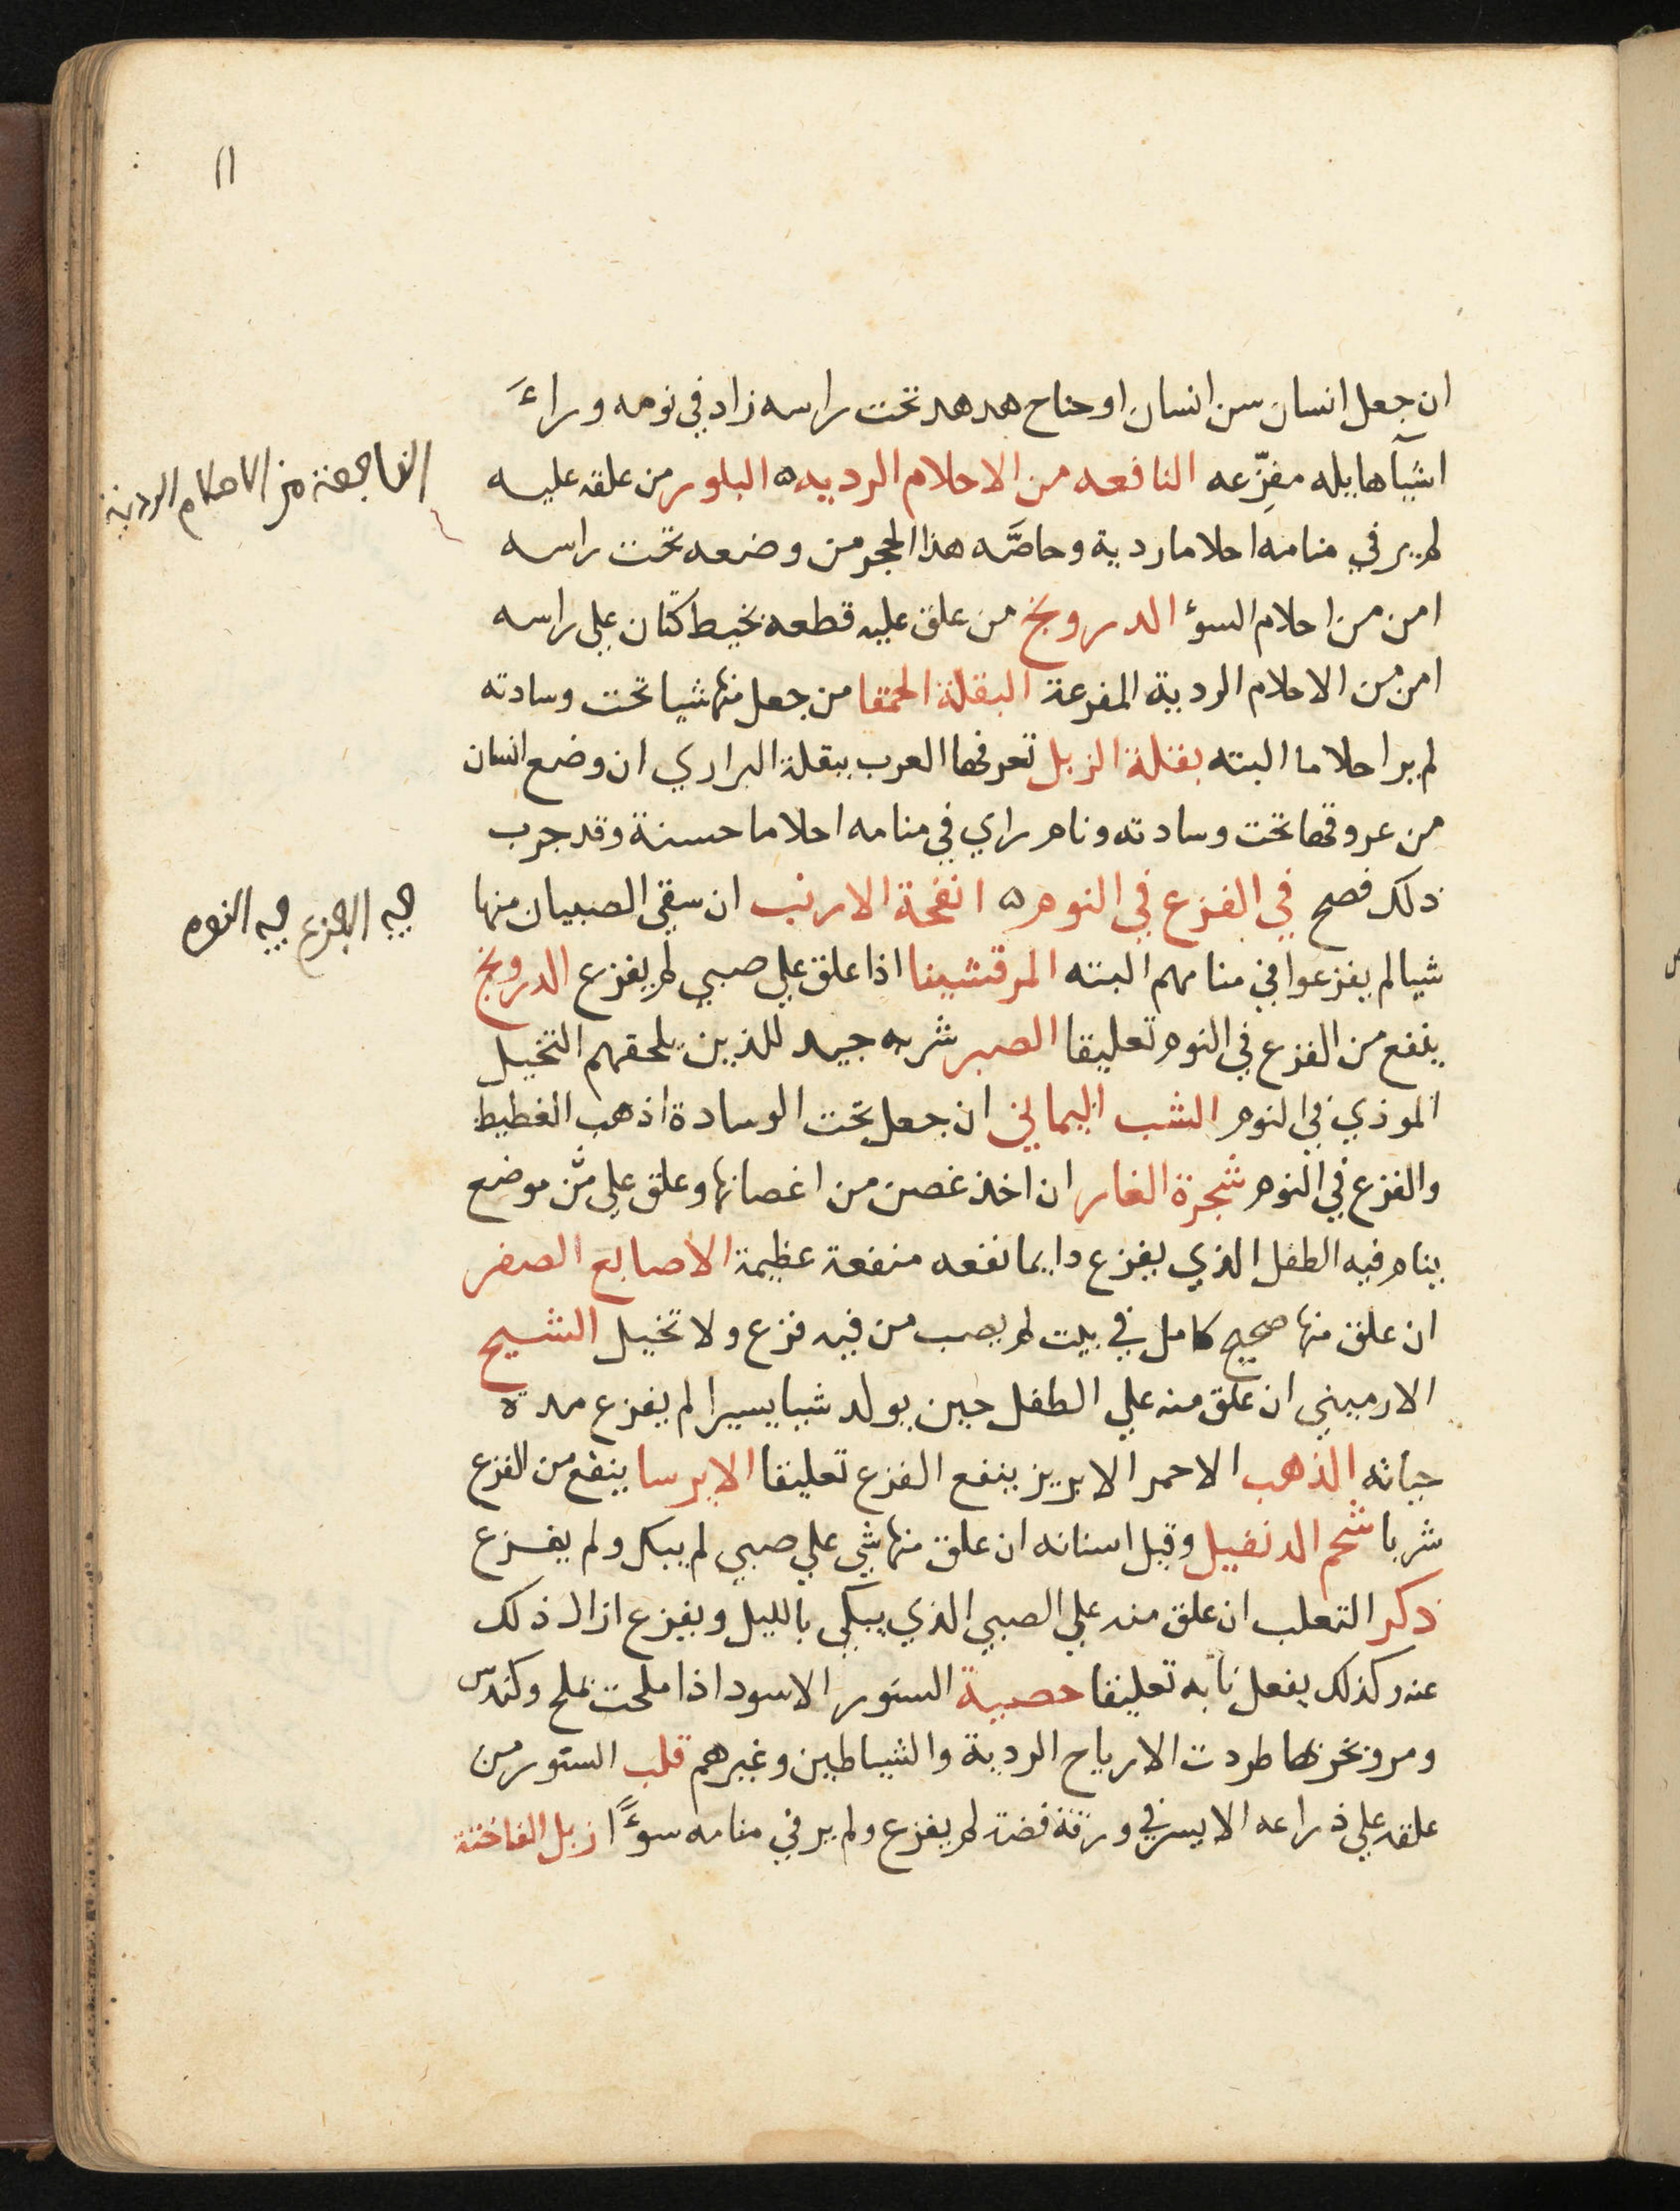 11
ان جعل انسان سن انسان او جناح هدهد تحت راسه زاد في نومه وراءَ
اشيآ هايله مفزّعه النافعه من الاحلام الرديه ه البلور من علقه عليه
النافعة من الاحلام الردية
لم ير في منامه احلاما ردية وخاصَّه هذا الحجر من وضعه تحت راسه
امن من احلام السوٓء الدرونج من علق عليه قطعه بخيط كتان علي راسه
امن من الاحلام الردية المفزعة البقلة الحمقا من جعل منها شيا تحت وسادته
لم ير احلاما البته بقلة الزبل تعرفها العرب ببقلة البراري ان وضع انسان
من عروقها تحت وسادته ونام راي في منامه احلاما حسنة وقد جرب
ذلك فصح في الفزع في النوم ه انفحة الارنب ان سقي الصبيان منها
في الفزع في النوم
شيا لم يفزعوا في منامهم البته المرقشيثا اذا علق علي صبي لم يفزع الدرونج
ينفع من الفزع في النوم تعليقا الصبر شربه جيد للذين يلحقهم التخيل
الموذي في النوم الشب اليماني ان جعل تحت الوسادة اذهب الغطيط
والفزع في النوم شجرة الغار ان اخذ غصن من اغصانها وعلق علي من موضع
ينام فيه الطفل الذي يفزع دايما نفعه منفعة عظيمة الاصابع الصفر
ان علق منها صحيح كامل في بيت لم يصب من فيه فزع ولا تخيل الشيح
الارميني ان علق منه علي الطفل حين يولد شيا يسيرا لم يفزع مدة
حياته الذهب الاحمر الابريز ينفع الفزع تعليقا الايرسا ينفع من الفزع
شربا شحم الدنفيل وقيل اسنانه ان علق منها شي علي صبي لم يبك ولم يفزع
ذكر الثعلب ان علق منه علي الصبي الذي يبكي بالليل ويفزع ازال ذلك
عنه وكذلك يفعل نابه تعليقا خصية السنور الاسود اذا ملحت بملح وكندس
ومر وبخر بها طردت الارياح الردية والشياطين وغيرهم قلب السنور من
علقه علي ذراعه الايسر في ورقة فضة لم يفزع ولم ير في منامه سوءًا زبل الفاختة